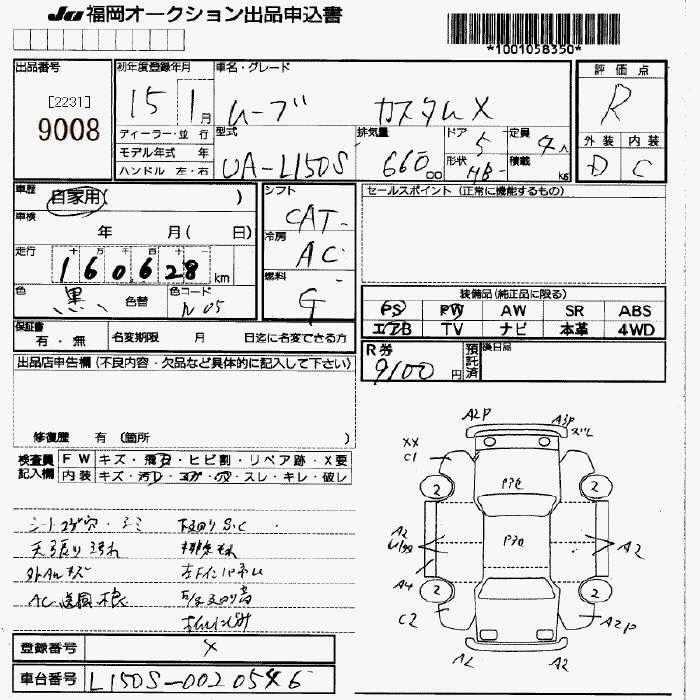 JU 福岡オークション出品申込書
*1001058350*
出品番号
[2231]
9008
初年度登録年月
15 1月
車名・グレード
ムーブ カスタムX
評価点
R
ディーラー・並 行
モデル年式 年
ハンドル 左・右
型式
UA-L150S
排気量
660 cc
ドア 5
形状 HB
定員 4人
積載 kg
外装 内装
D C
車歴
自家用( )
車検
年 月( 日)
走行
十 万 千 百 十 一
160628 km
色 黒 色替
色コード
N05
シフト
CAT
冷房
AC
燃料
G
セールスポイント (正常に機能するもの)
装備品(純正品に限る)
PS PW AW SR ABS
エアB TV ナビ 本革 4WD
保証書
有・無
名変期限 月 日迄に名変できる方
R券
9100円
預託済
後日局
出品店申告欄(不良内容・欠品など具体的に記入して下さい)
修復歴 有 (箇所 )
検査員記入欄
FW キズ・飛石・ヒビ割・リペア跡・X要
内装 キズ・汚レ・コゲ・穴・スレ・キレ・破レ
シートコゲ穴・シミ
天張り汚れ
外Aルキズ
AC送風不良
A2P A3P ズレ
XX
C1
2 2
P3U
A2
P30
A2
A4
2 2
C2 A2P
A2 A2
登録番号 4
車台番号 L150S-0020546